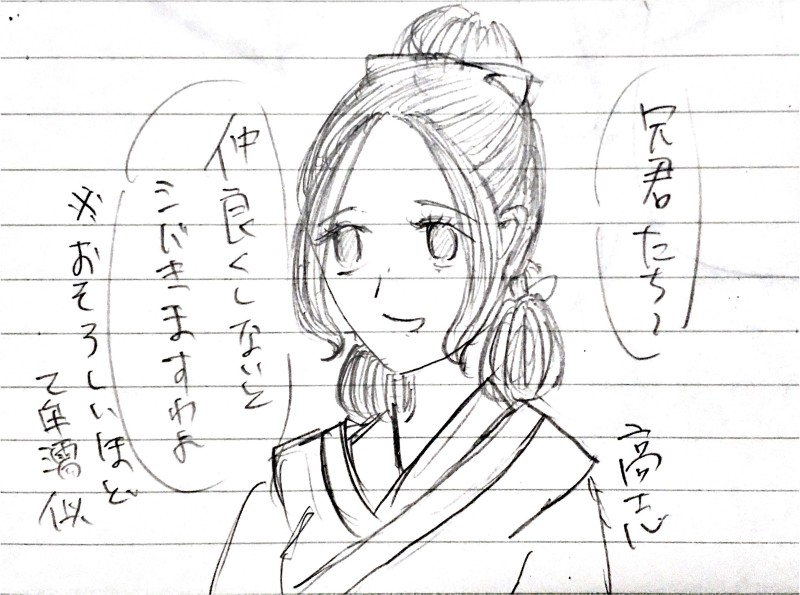 兄君たち～
仲良くしないと
シバきますわよ
※おそろしいほど
て卑彌似
高志